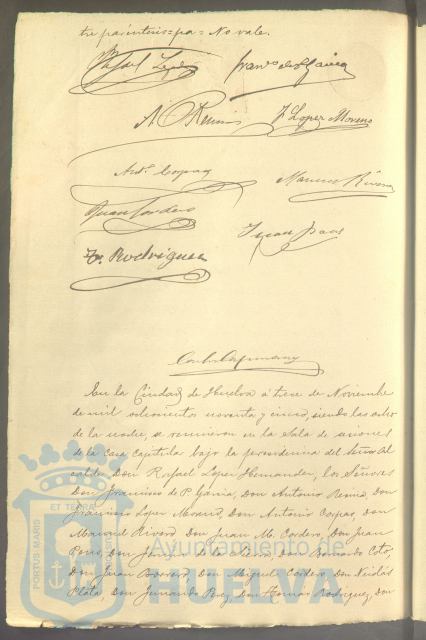 tre paréntesis=pa=No vale.
Rafael López
Franco de P. García
A. Remis
F. Lopez Moreno
Anto. Corpas
Manuel Rivero
Juan Cordero
Juan Pons
F. Rodriguez
En la Ciudad de Huelva á trece de Noviembre
de mil ochocientos noventa y cinco, siendo las ocho
de la noche, se reunieron en la Sala de sesiones
de la Casa Capitular bajo la presidencia del Señor Al
calde Don Rafael López Hernandez, los Señores
Don Francisco de P. García, Don Antonio Remis, Don
Francisco Lopez Moreno, Don Antonio Corpas, Don
Manuel Rivero, Don Juan M. Cordero, Don Juan
Pons, Don Don Bernardo Coto,
Don Juan Borrero, Don Miguel Cordero, Don Nicolás
Plata, Don Fernando Don Tomás Rodriguez, Don
ET TERRÆ
PORTUS MARIS
Ayuntamiento de
HUELVA